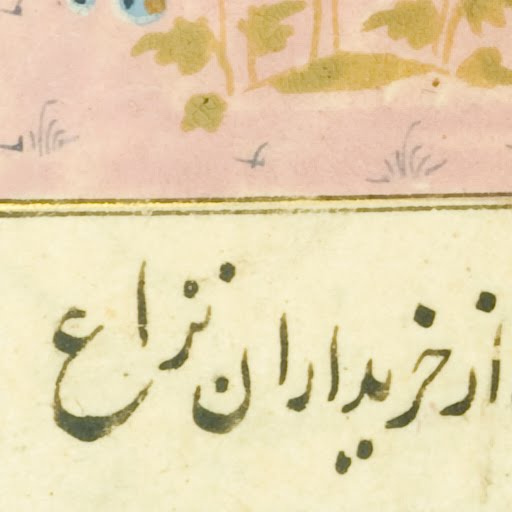 از خریداران نزاع